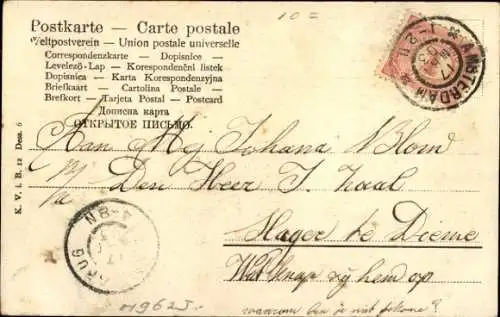 Postkarte – Carte postale
Weltpostverein – Union postale universelle
Correspondenzkarte – Dopisnice –
Levelező-Lap – Korespondenční listek
Dopisnica – Karta Korespondenzyjna
Briefkaart – Cartolina Postale –
Brefkort – Tarjeta Postal – Postcard
Дописна карта
ОТКРЫТОЕ ПИСЬМО.
10 =
AMSTERDAM
Aan Mej Johana Blom
p/a Den Heer J. Kaal
Slager te Dieme
op
waarom ben je niet gekome?
K. V. i. B. 12 Dess. 6